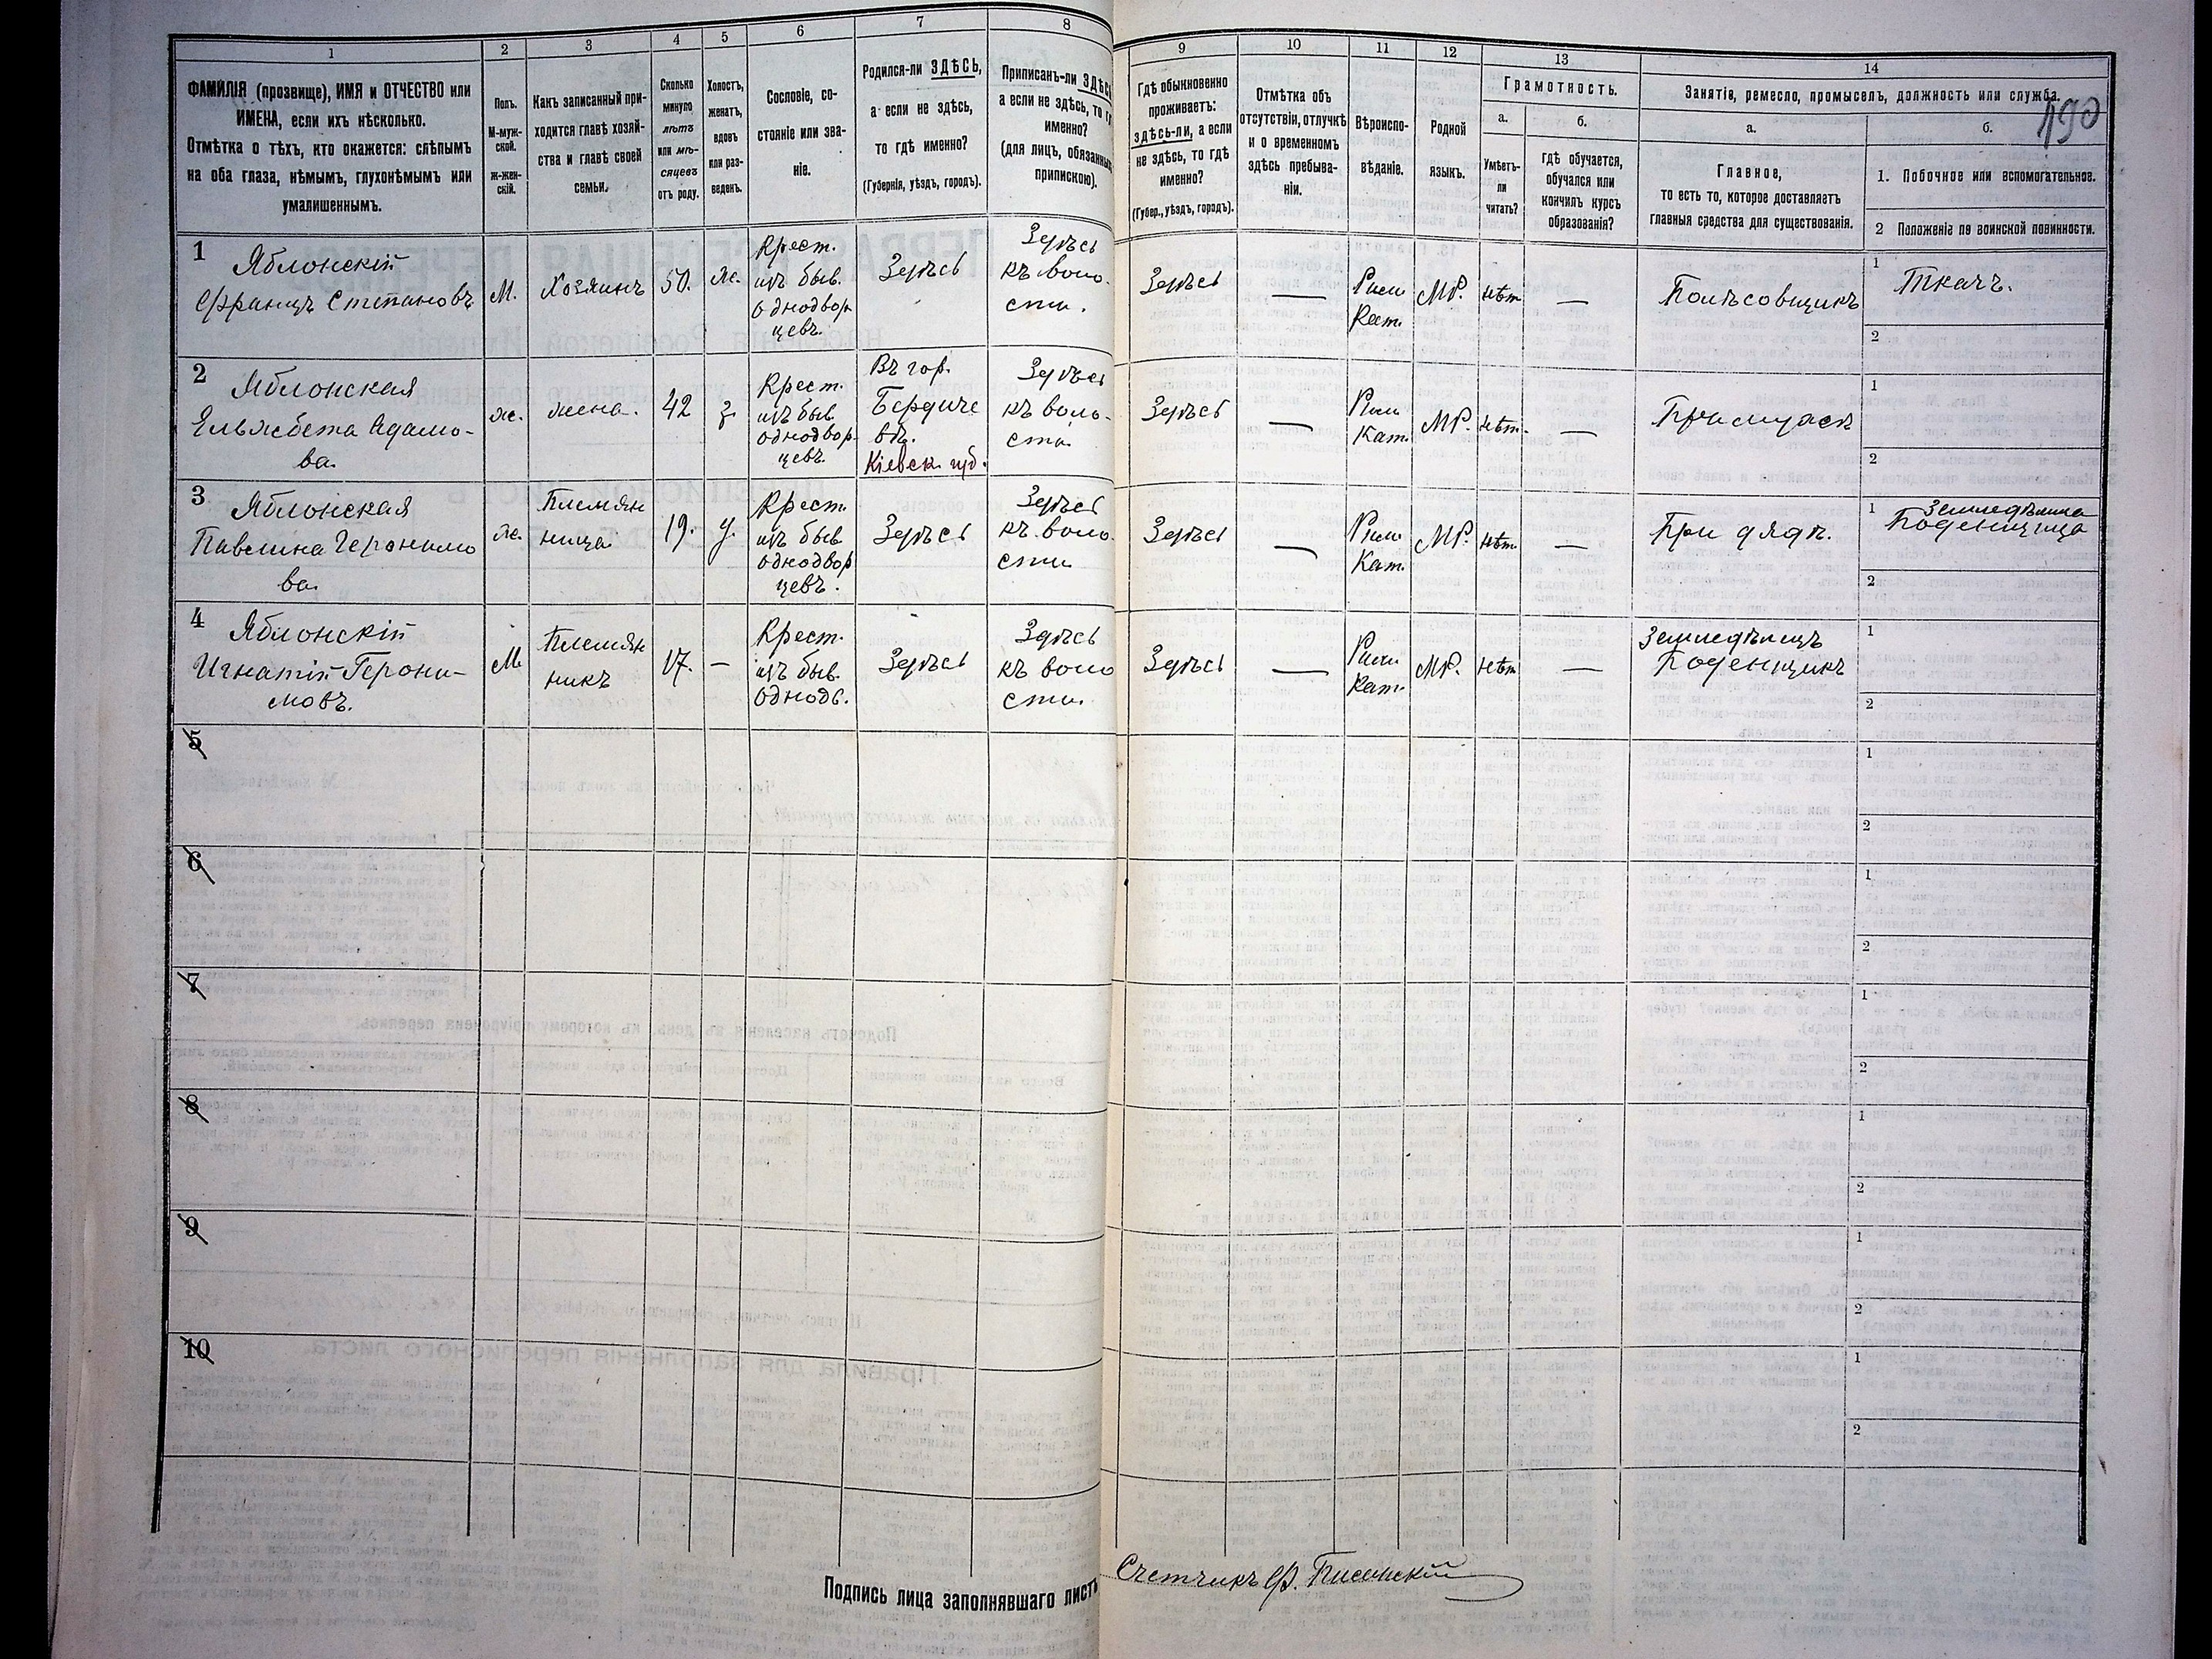 1
2
3
4
5
6
7
8
9
10
11
12
13
14
ФАМИЛІЯ (прозвище), ИМЯ и ОТЧЕСТВО или
ИМЕНА, если ихъ нѣсколько.
Отмѣтка о тѣхъ, кто окажется: слѣпымъ
на оба глаза, нѣмымъ, глухонѣмымъ или
умалишеннымъ.
Полъ.
М-муж-
ской.
ж-жен-
скій.
Какъ записанный при-
ходится главѣ хозяй-
ства и главѣ своей
семьи.
Сколько
минуло
лѣтъ
или мѣ-
сяцевъ
отъ роду.
Холостъ,
женатъ,
вдовъ
или раз-
веденъ.
Сословіе, со-
стояніе или зва-
ніе.
Родился-ли ЗДѢСЬ,
а если не здѣсь,
то гдѣ именно?
(Губернія, уѣздъ, городъ).
Приписанъ-ли ЗДѢСЬ
а если не здѣсь, то гдѣ
именно?
(для лицъ, обязанныхъ
припискою).
Гдѣ обыкновенно
проживаетъ:
здѣсь-ли, а если
не здѣсь, то гдѣ
именно?
(Губер., уѣздъ, городъ).
Отмѣтка объ
отсутствіи, отлучкѣ
и о временномъ
здѣсь пребыва-
ніи.
Вѣроиспо-
вѣданіе.
Родной
языкъ.
Грамотность.
а.
Умѣетъ-
ли
читать?
б.
гдѣ обучается,
обучался или
кончилъ курсъ
образованія?
Занятіе, ремесло, промыселъ, должность или служба.
190
а.
Главное,
то есть то, которое доставляетъ
главныя средства для существованія.
б.
1. Побочное или вспомогательное.
2 Положеніе по воинской повинности.
1
Яблонскій
Францъ Степановъ
М.
Хозяинъ
50.
ж.
Крест.
изъ быв.
однодвор
цевъ.
Здѣсь
Здѣсь
къ воло-
сти.
Здѣсь
—
Рим
Кат.
МР.
нѣт
—
Полѣсовщикъ
1
Ткачъ.
2
2
Яблонская
Ельжбета Адамо-
ва.
ж.
жена.
42
з.
Крест.
изъ быв
однодвор-
цевъ.
Въ гор.
Бердиче
вѣ.
Кіевск. губ.
Здѣсь
къ воло-
сти.
Здѣсь
—
Рим
Кат.
МР.
нѣт.
—
При мужѣ
1
2
3
Яблонская
Павлина Геронимо
ва.
ж.
Племян
ница
19.
д.
Крест.
изъ быв
однодвор
цевъ.
Здѣсь
Здѣсь
къ воло-
сти
Здѣсь
—
Рим
Кат.
МР.
нѣт.
—
При дядѣ.
1
Земледѣлица
Поденщица
2
4
Яблонскій
Игнатій Герони-
мовъ.
М
Племян
никъ
17.
—
Крест.
изъ быв.
однодв.
Здѣсь
Здѣсь
къ воло
сти.
Здѣсь
—
Рим
Кат.
МР.
нѣт
—
Земледѣлецъ
Поденщикъ
1
2
5
1
2
6
1
2
7
1
2
8
1
2
9
1
2
10
1
2
Подпись лица заполнявшаго листъ
Счетчикъ Ф. Писанскій